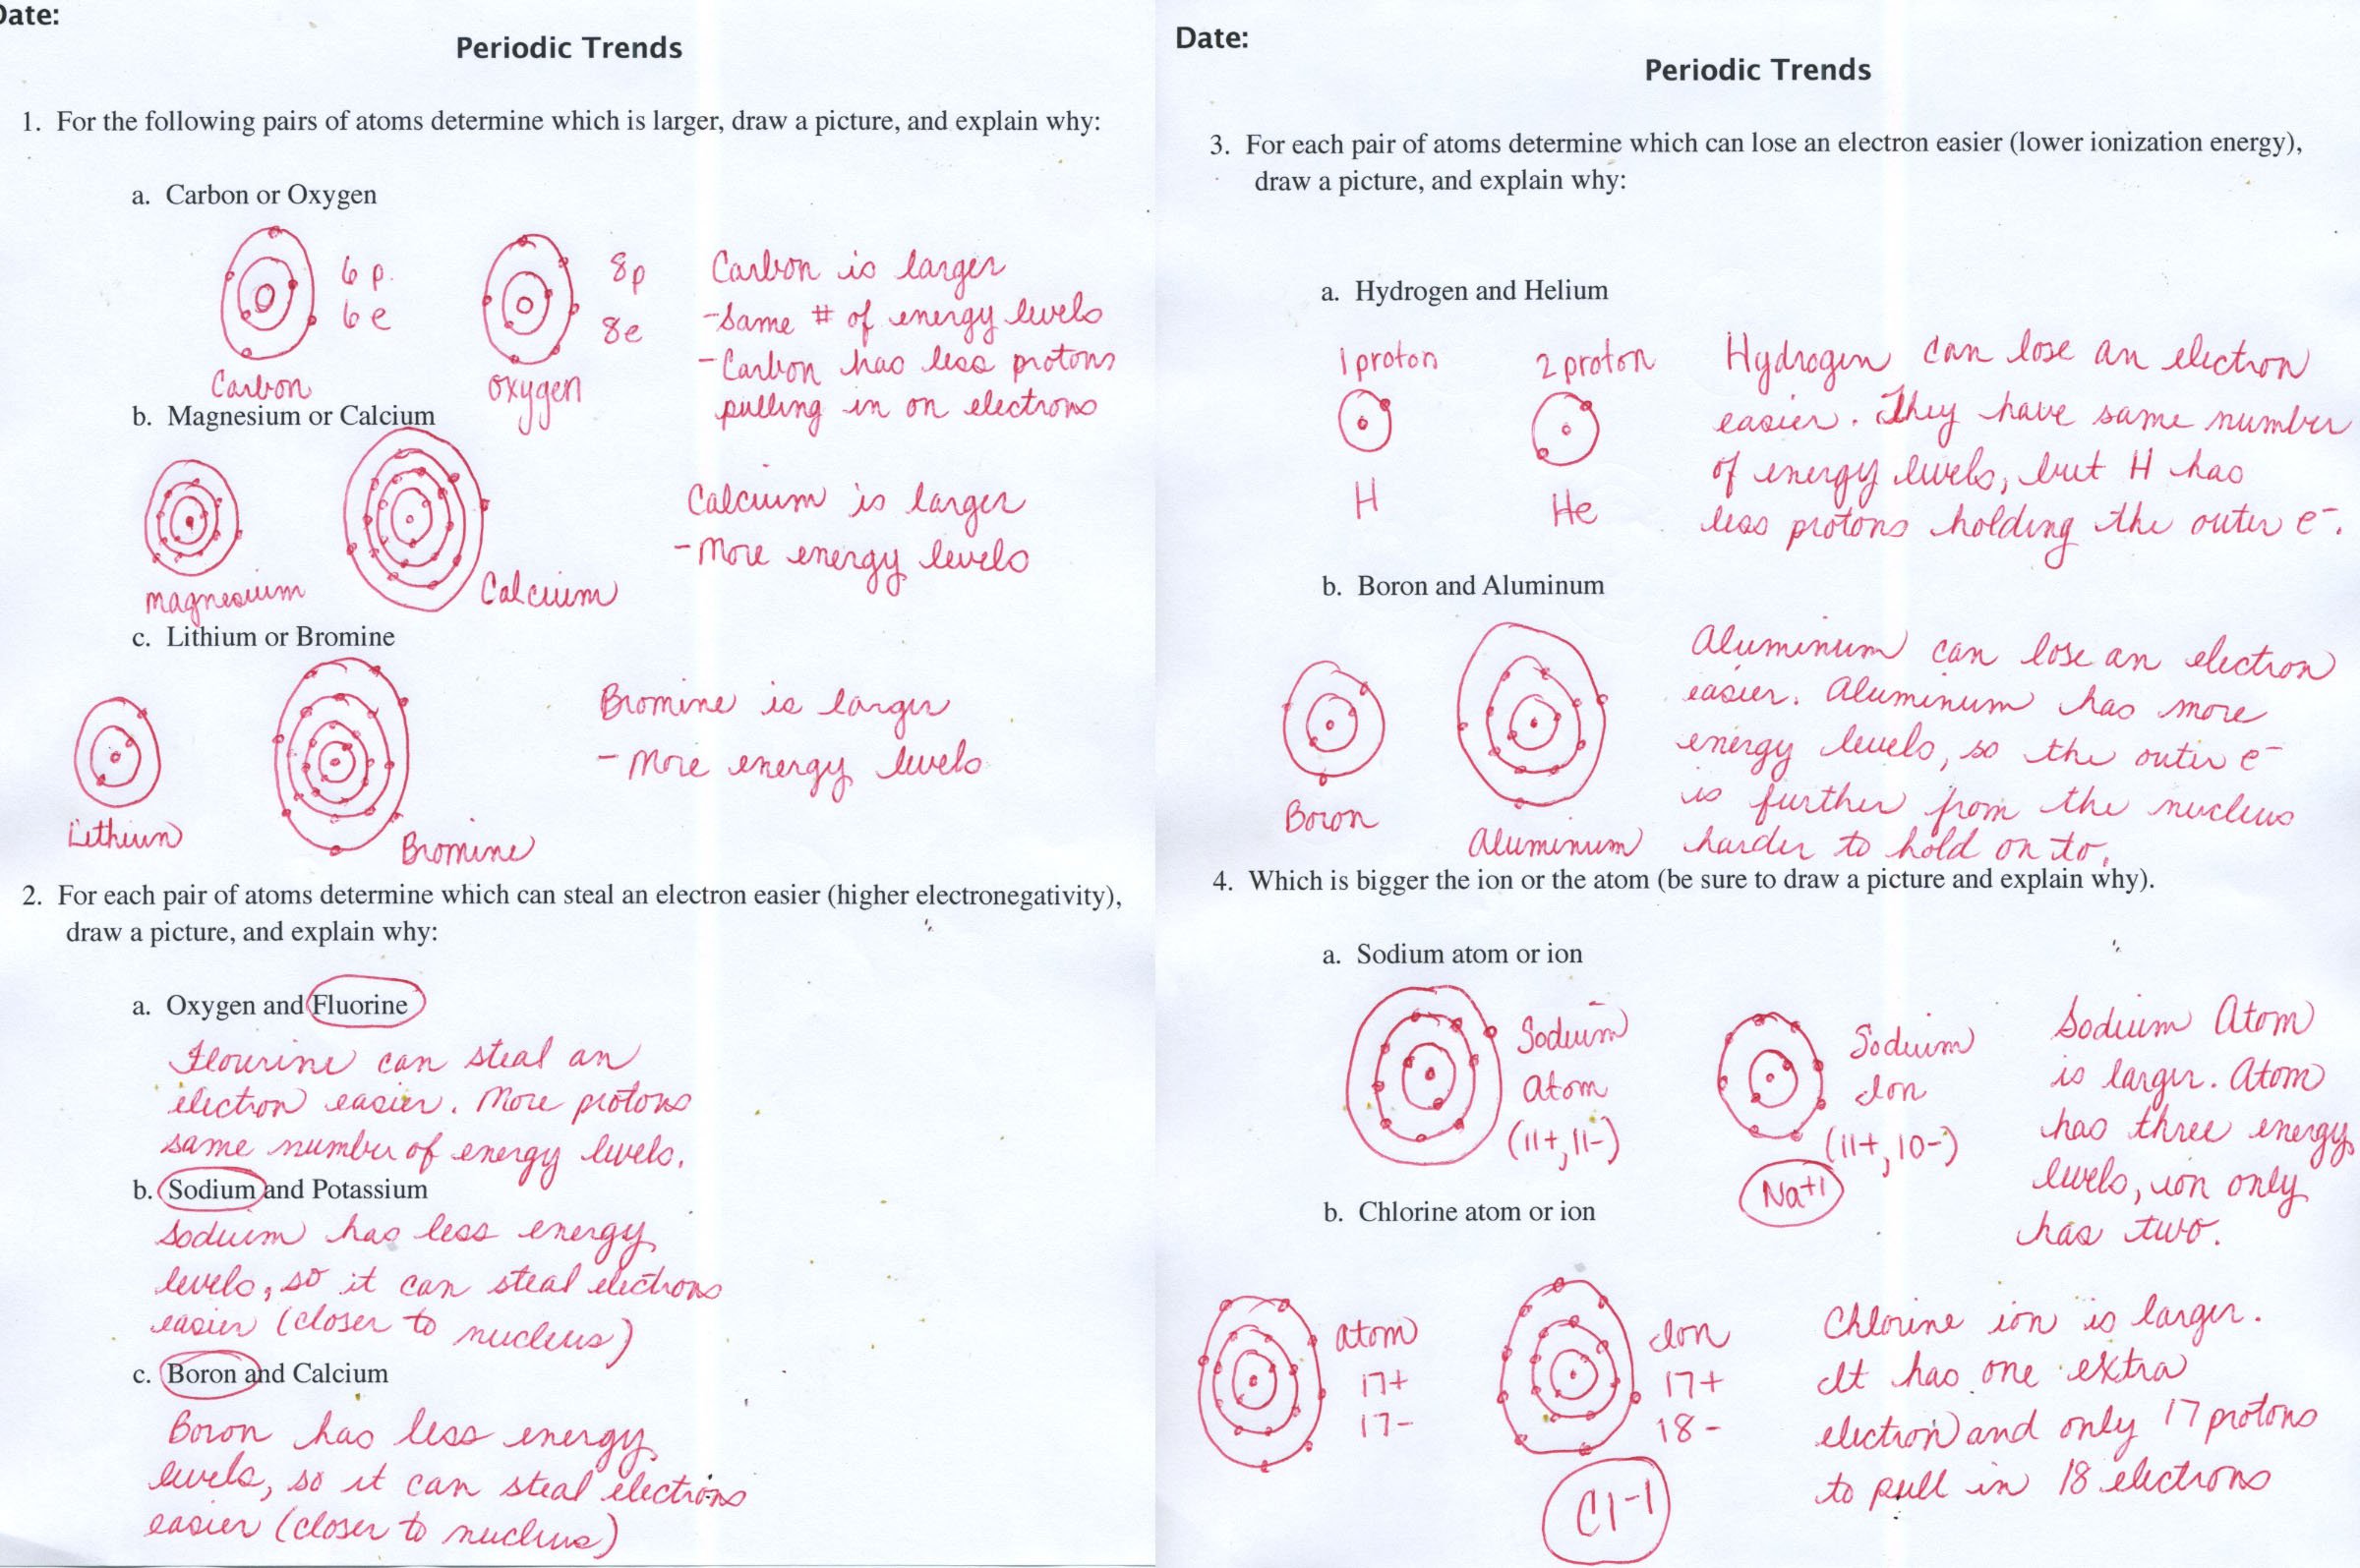 Date:
Periodic Trends
1. For the following pairs of atoms determine which is larger, draw a picture, and explain why:
a. Carbon or Oxygen
6 p.
6 e
Carbon
8p
8e
oxygen
Carbon is larger
-Same # of energy levels
-Carbon has less protons
pulling in on electrons
b. Magnesium or Calcium
magnesium
Calcium
Calcium is larger
-More energy levels
c. Lithium or Bromine
Lithium
Bromine
Bromine is larger
- More energy levels
2. For each pair of atoms determine which can steal an electron easier (higher electronegativity),
draw a picture, and explain why:
a. Oxygen and Fluorine
Flourine can steal an
electron easier. More protons
same number of energy levels.
b. Sodium and Potassium
Sodium has less energy
levels, so it can steal electrons
easier (closer to nucleus)
c. Boron and Calcium
Boron has less energy
levels, so it can steal electrons
easier (closer to nucleus)
Date:
Periodic Trends
3. For each pair of atoms determine which can lose an electron easier (lower ionization energy),
draw a picture, and explain why:
a. Hydrogen and Helium
1 proton
H
2 proton
He
Hydrogen can lose an electron
easier. They have same number
of energy levels, but H has
less protons holding the outer e-.
b. Boron and Aluminum
Boron
Aluminum
Aluminum can lose an electron
easier. Aluminum has more
energy levels, so the outer e-
is further from the nucleus
harder to hold on to.
4. Which is bigger the ion or the atom (be sure to draw a picture and explain why).
a. Sodium atom or ion
Sodium
Atom
(11+, 11-)
Sodium
Ion
(11+, 10-)
Na+1
Sodium Atom
is larger. Atom
has three energy
levels, ion only
has two.
b. Chlorine atom or ion
atom
17+
17-
Ion
17+
18-
Cl-1
Chlorine ion is larger.
It has one extra
electron and only 17 protons
to pull in 18 electrons